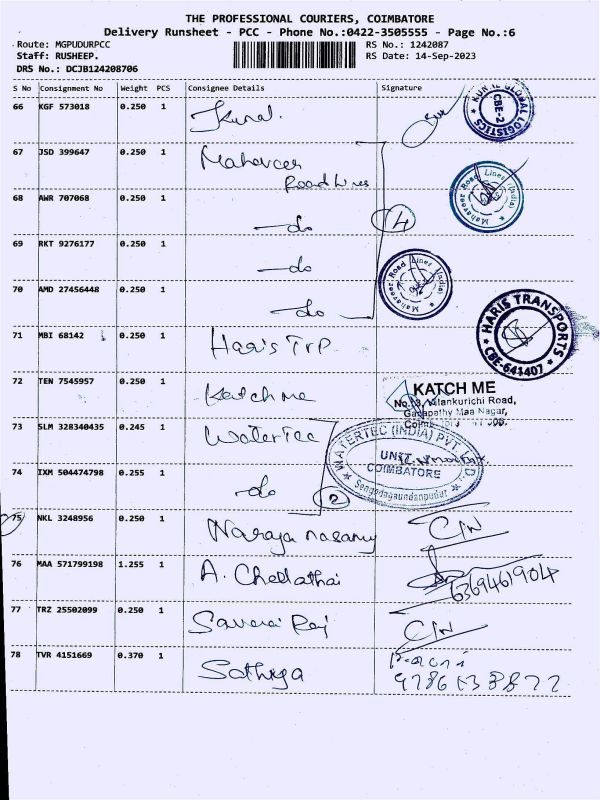 THE PROFESSIONAL COURIERS, COIMBATORE
Delivery Runsheet - PCC - Phone No.:0422-3505555 - Page No.:6
Route: MGPUDURPCC RS No.: 1242087
Staff: RUSHEEP. RS Date: 14-Sep-2023
DRS No.: DCJB124208706
S No Consignment No Weight PCS Consignee Details Signature
66 KGF 573018 0.250 1 Kunal.
KUNAL GLOBAL LOGISTICS CBE-2
67 JSD 399647 0.250 1 Mahaveer
Road Lines
Mahaveer Road Lines (India)
68 AWR 707068 0.250 1 -do
4
69 RKT 9276177 0.250 1 -do
Mahaveer Road Lines (India)
70 AMD 27456448 0.250 1 -do
71 MBI 68142 0.250 1 Haris Trp.
HARIS TRANSPORTS CBE-641407
72 TEN 7545957 0.250 1 Katch me
KATCH ME
Vilankurichi Road,
Ganapathy Maa Nagar,
73 SLM 328340435 0.245 1 Watertec
WATERTEC (INDIA) PVT. LTD.
UNIT
COIMBATORE
Sengodagaundanpudur
74 IXM 504474798 0.255 1 -do
2
75 NKL 3248956 0.250 1 Narayanasamy C/N
76 MAA 571799198 1.255 1 A. Chellathai
6369461904
77 TRZ 25502099 0.250 1 Savarai Raj C/N
78 TVR 4151669 0.370 1 Sathiya